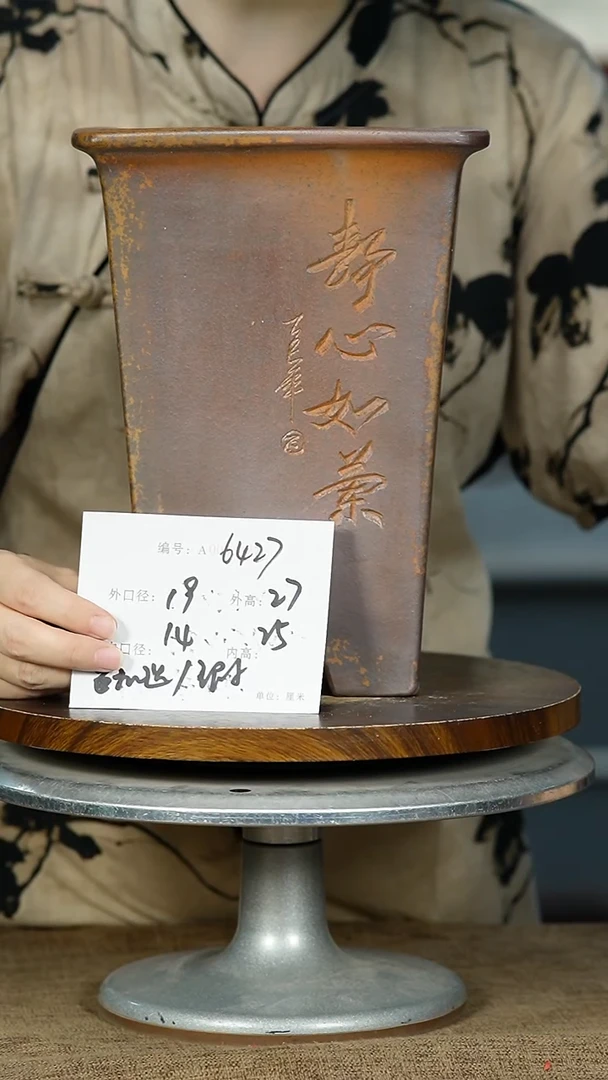 静心如菓
编号：A 6427
外口径：19 外高：27
内口径：14 内高：25
单位：厘米